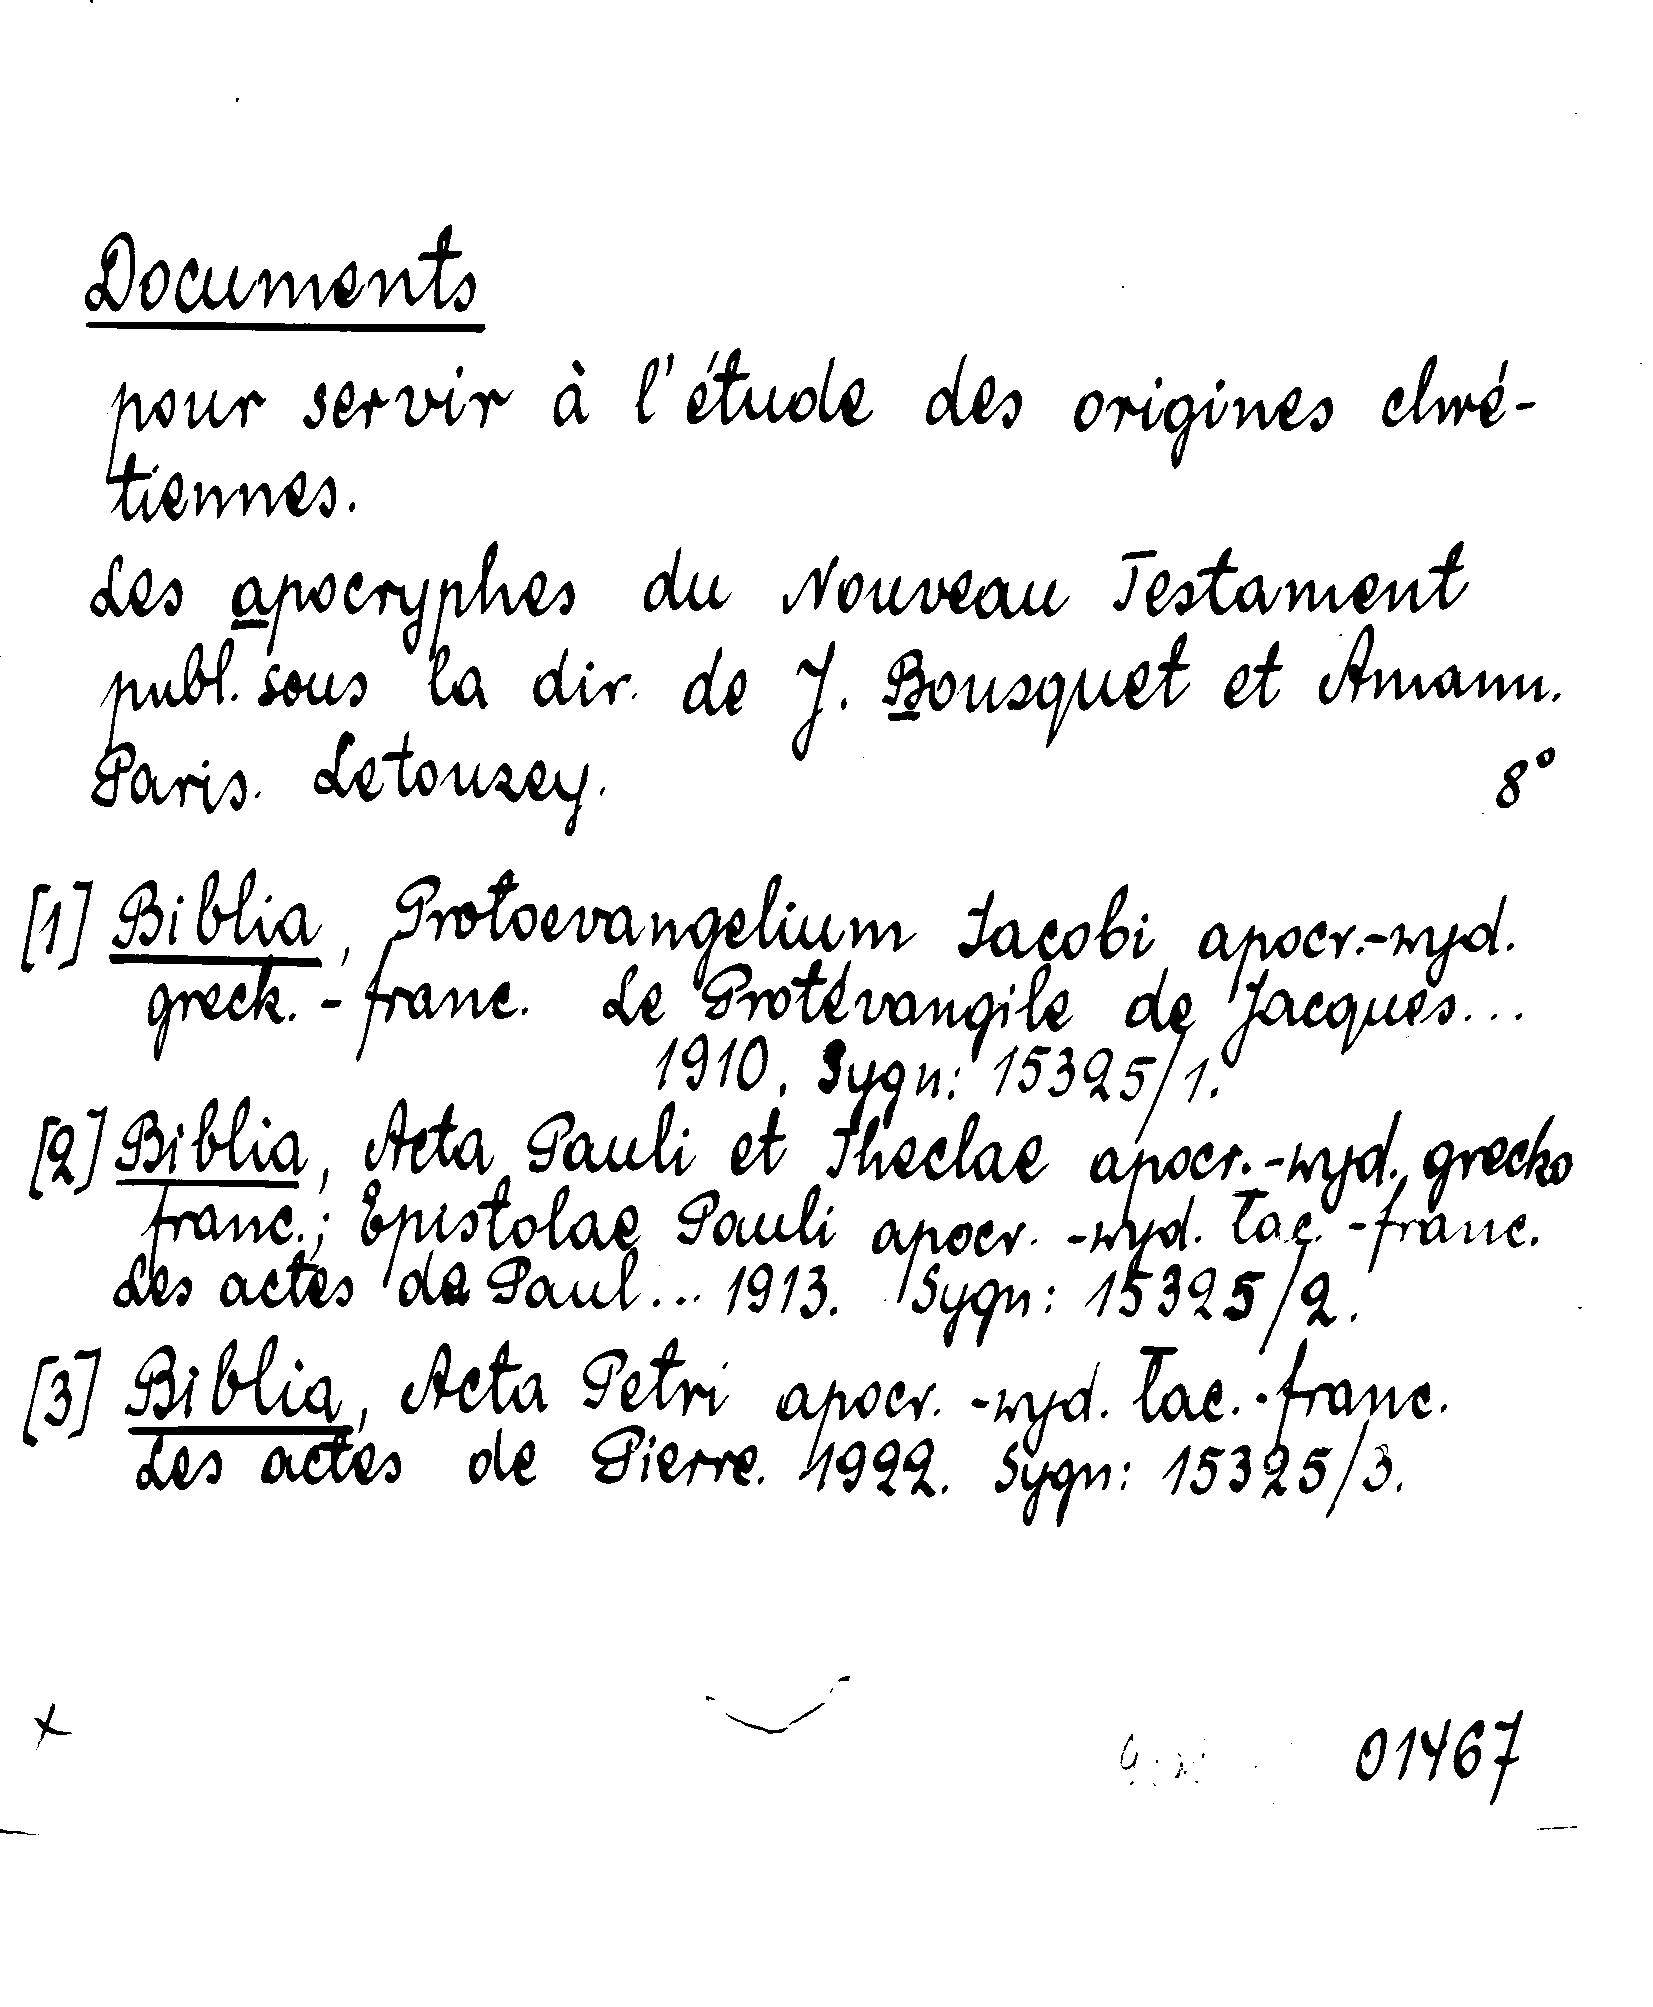 Documents
pour servir à l'étude des origines chré-
tiennes.
Les apocryphes du Nouveau Testament
publ. sous la dir. de J. Bousquet et Amann.
Paris. Letouzey. 8°
[1] Biblia, Protoevangelium Jacobi apocr.-wyd.
greck.-franc. Le Protévangile de Jacques...
1910. Sygn: 15325/1.
[2] Biblia, Acta Pauli et Theclae apocr.-wyd. grecko
franc.; Epistolae Pauli apocr.-wyd. łac.-franc.
Les actes de Paul... 1913. Sygn: 15325/2.
[3] Biblia, Acta Petri apocr.-wyd. łac.-franc.
Les actes de Pierre. 1922. Sygn: 15325/3.
x
01467